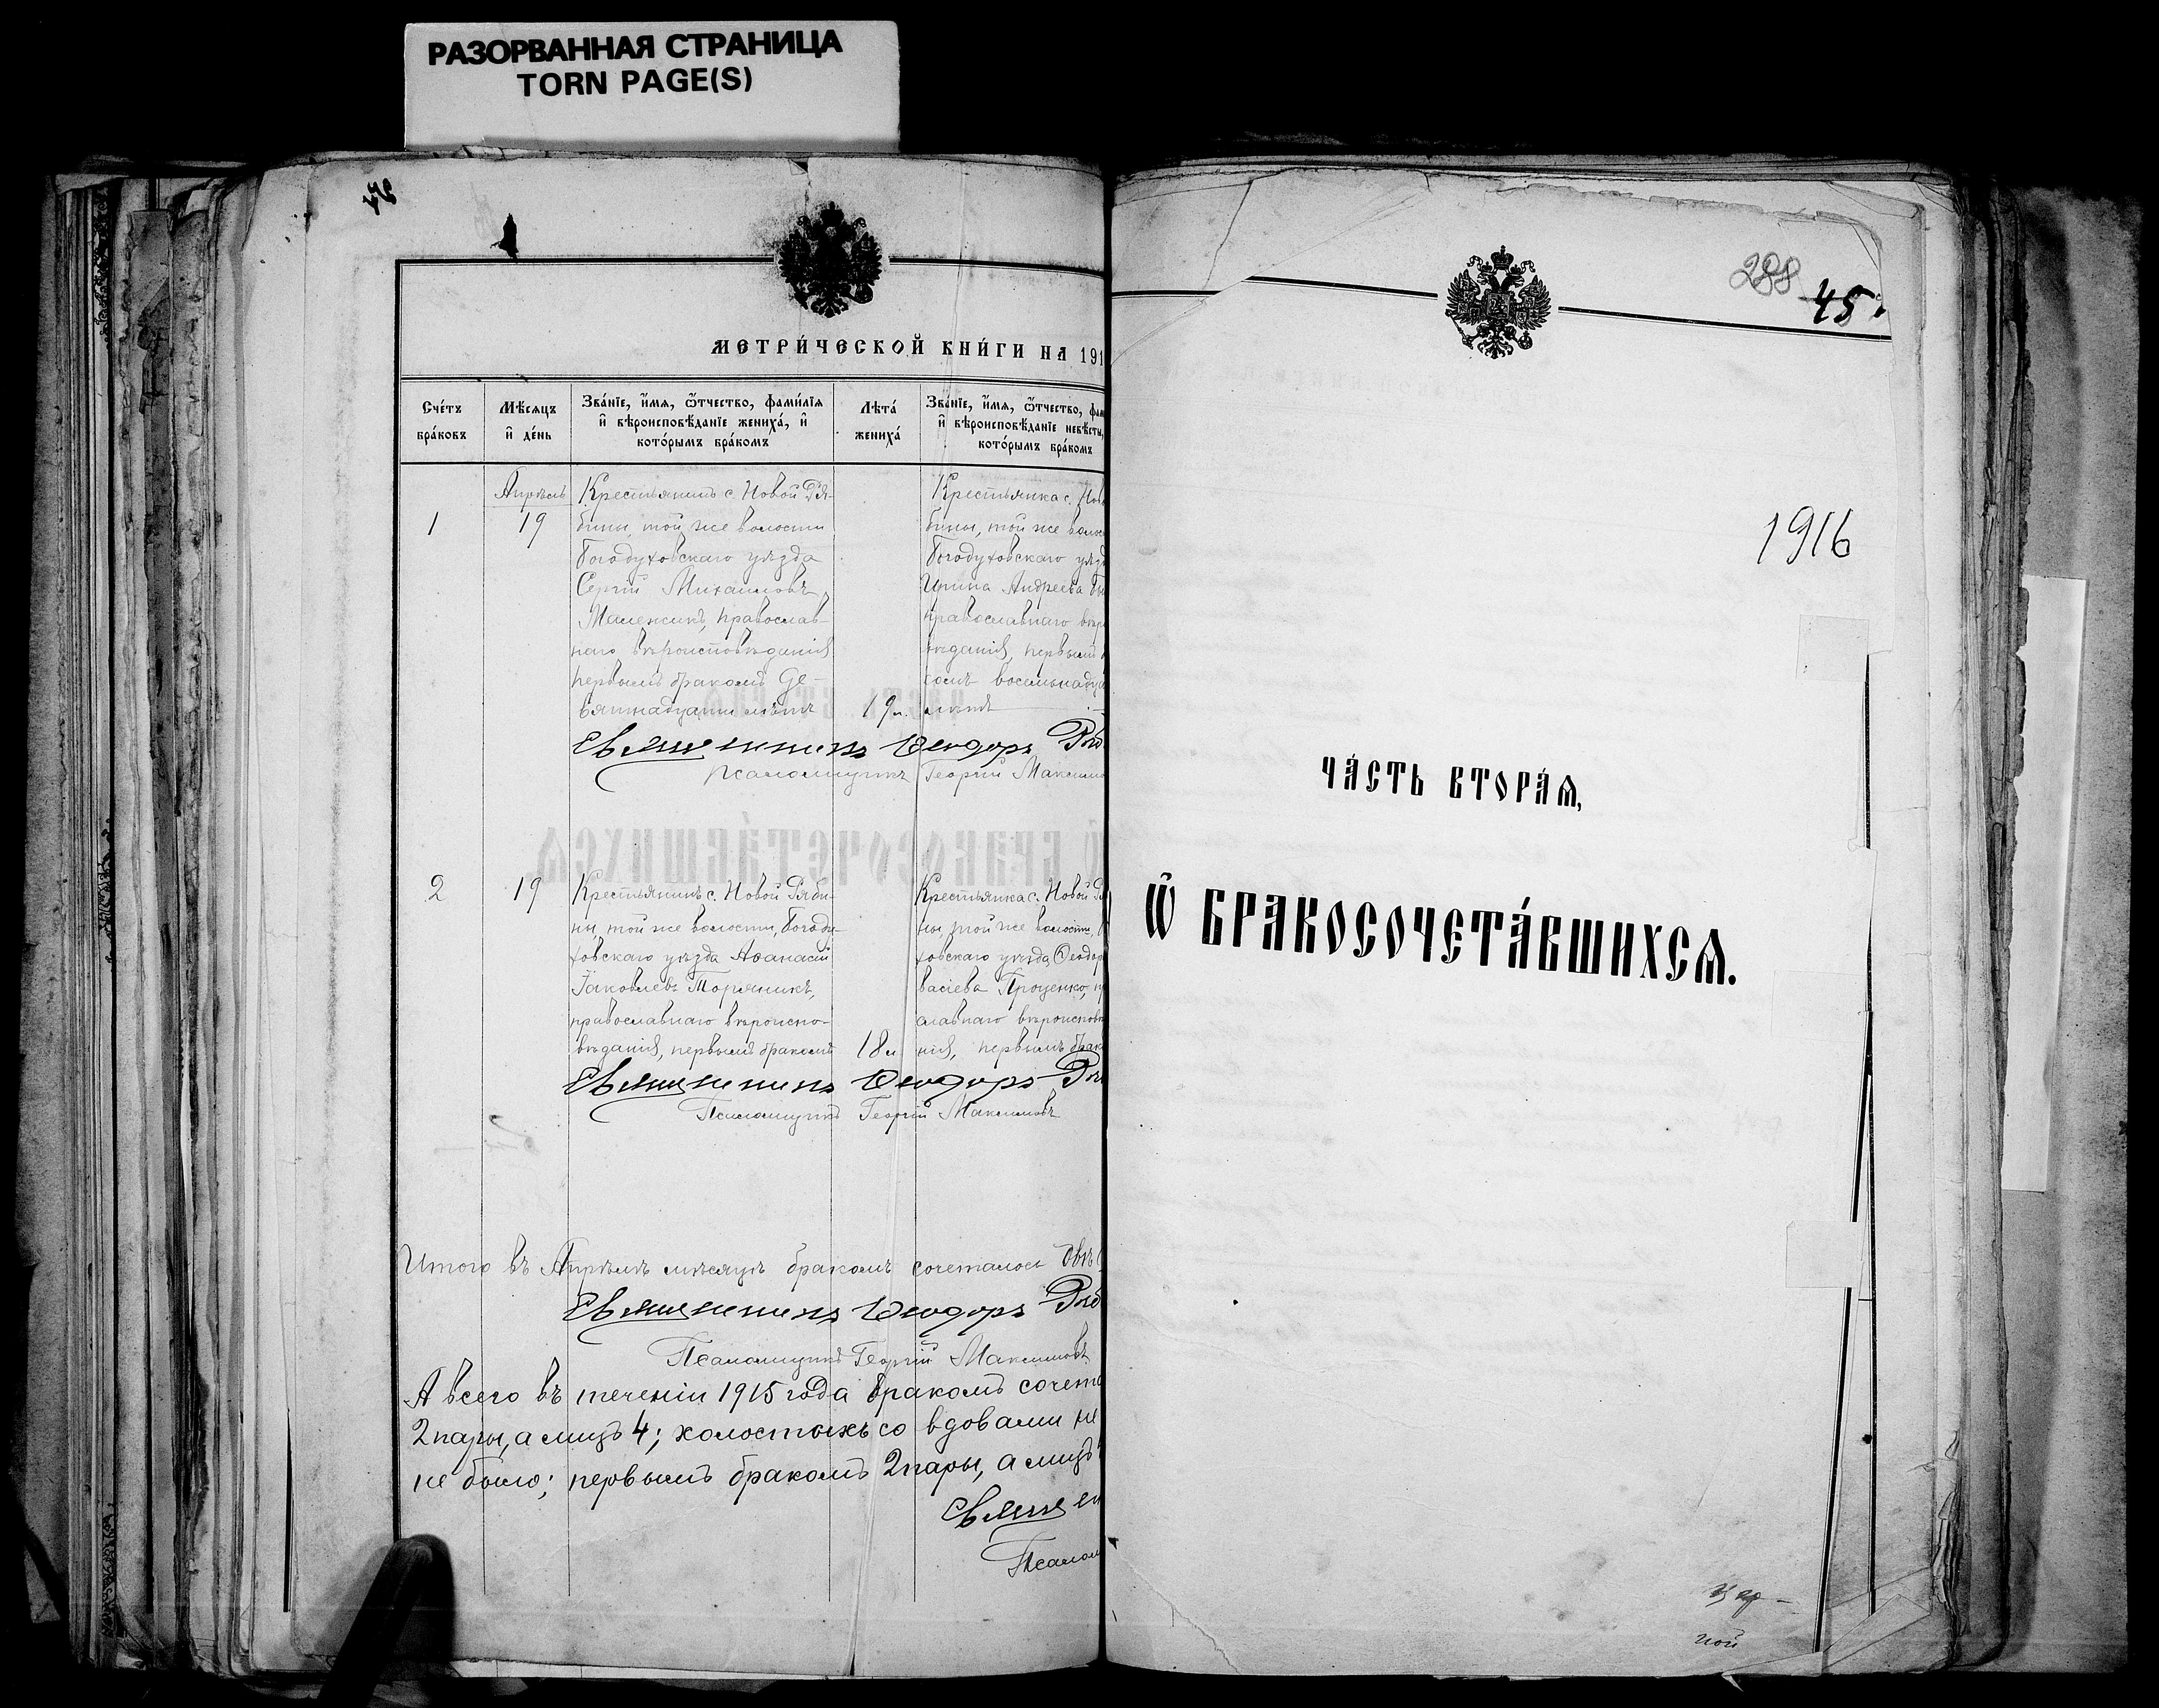 РАЗОРВАННАЯ СТРАНИЦА
TORN PAGE(S)
МЕТРИ́ЧЕСКОЙ КНИ́ГИ НА 191
Сче́тъ бра́ковъ
Мѣ́сяцъ и҆ де́нь
Зва́нїе, и҆́мѧ, ѻ҆́тчество, фами́лїѧ
и҆ вѣроисповѣ́данїе жениха́, и҆
кото́рымъ бра́комъ
Лѣта́ жениха́
Зва́нїе, и҆́мѧ, ѻ҆́тчество, фам
и҆ вѣроисповѣ́данїе невѣ́сты,
кото́рымъ бра́комъ
1
Апрѣль
19
Крестьянинъ с. Новой Ря-
бины, той же волости
Богодуховскаго уѣзда
Сергій Михаиловъ
Маленикъ, православ-
наго вѣроисповѣданія
первымъ бракомъ Де-
вятнадцати лѣтъ
19 л.
Крестьянка с. Нов
бины, той же волос
Богодуховскаго уѣзд
Ирина Андреева
православнаго вѣро
вѣданія, первымъ
комъ восемьнадца
лѣтъ
Священникъ Ѳеодоръ
Псаломщикъ Георгій Максимо
2
19
Крестьянинъ с. Новой Ряби-
ны, той же волости, Богоду-
ховскаго уѣзда Аѳанасій
Іаковлевъ Торяникъ,
православнаго вѣроиспо-
вѣданія, первымъ бракомъ
18 л
Крестьянка с. Новой Ря
ны, той же волости,
ховскаго уѣзда Ѳеодор
васіева Проценко, пр
славнаго вѣроисповѣ
нія, первымъ брак
Священникъ Ѳеодоръ
Псаломщикъ Георгій Максимовъ
Итого въ Апрѣлѣ мѣсяцѣ бракомъ сочеталось двѣ
Священникъ Ѳеодоръ
Псаломщикъ Георгій Максимовъ
А всего въ теченіи 1915 года бракомъ сочета
2 пары, а лицъ 4; холостыхъ со вдовами не
не было; первымъ бракомъ 2 пары, а лицъ
Священ
Псалом
288
45
1916
ЧА́СТЬ ВТОРА́Ѧ,
Ѽ БРАКОСОЧЕТА́ВШИХСѦ.